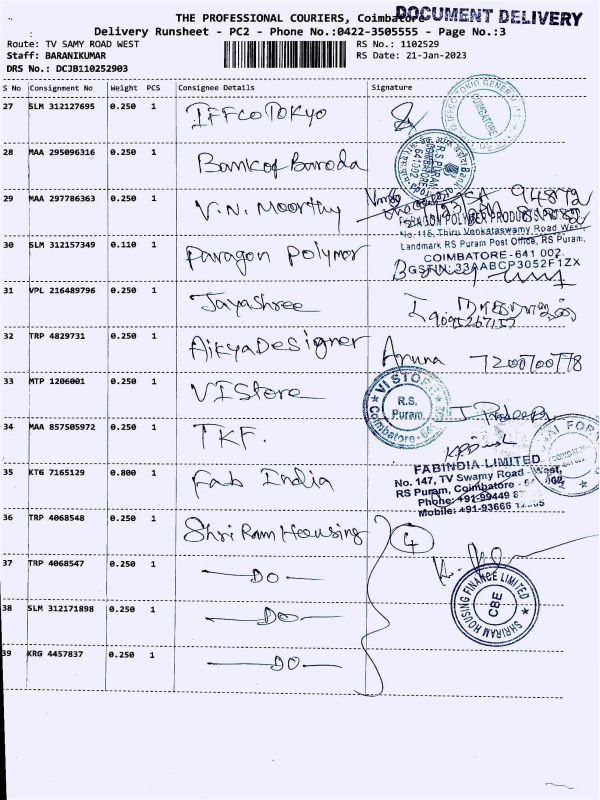 THE PROFESSIONAL COURIERS, Coimbatore
DOCUMENT DELIVERY
Delivery Runsheet - PC2 - Phone No.:0422-3505555 - Page No.:3
Route: TV SAMY ROAD WEST
RS No.: 1102529
Staff: BARANIKUMAR
RS Date: 21-Jan-2023
DRS No.: DCJB110252903
S No Consignment No Weight PCS Consignee Details Signature
27 SLM 312127695 0.250 1 IFFCO TOKYO
COIMBATORE
28 MAA 295096316 0.250 1 Bank of Baroda
29 MAA 297786363 0.250 1 V.N. Moorthy
94872
PARAGON POLYMER PRODUCTS
No.115, Thiru Venkataswamy Road West
Landmark RS Puram Post Office, RS Puram,
30 SLM 312157349 0.110 1 Paragon polymer
COIMBATORE - 641 002.
GSTIN: 33AABCP3052F1ZX
31 VPL 216489796 0.250 1 Jayashree
32 TRP 4829731 0.250 1 Aikya Designer Aruna 7200700778
33 MTP 1206001 0.250 1 VIStore
VISTORE
R.S. Puram
Coimbatore
34 MAA 857505972 0.250 1 TKF.
35 KTG 7165129 0.800 1 Fab India
FABINDIA LIMITED
No. 147, TV Swamy Road - West,
RS Puram, Coimbatore
Phone: +91-99449
Mobile: +91-93666
36 TRP 4068548 0.250 1 Shri Ram Housing 4
37 TRP 4068547 0.250 1 — DO —
38 SLM 312171898 0.250 1 — DO —
SHRIRAM HOUSING FINANCE LIMITED
CBE
39 KRG 4457837 0.250 1 — DO —